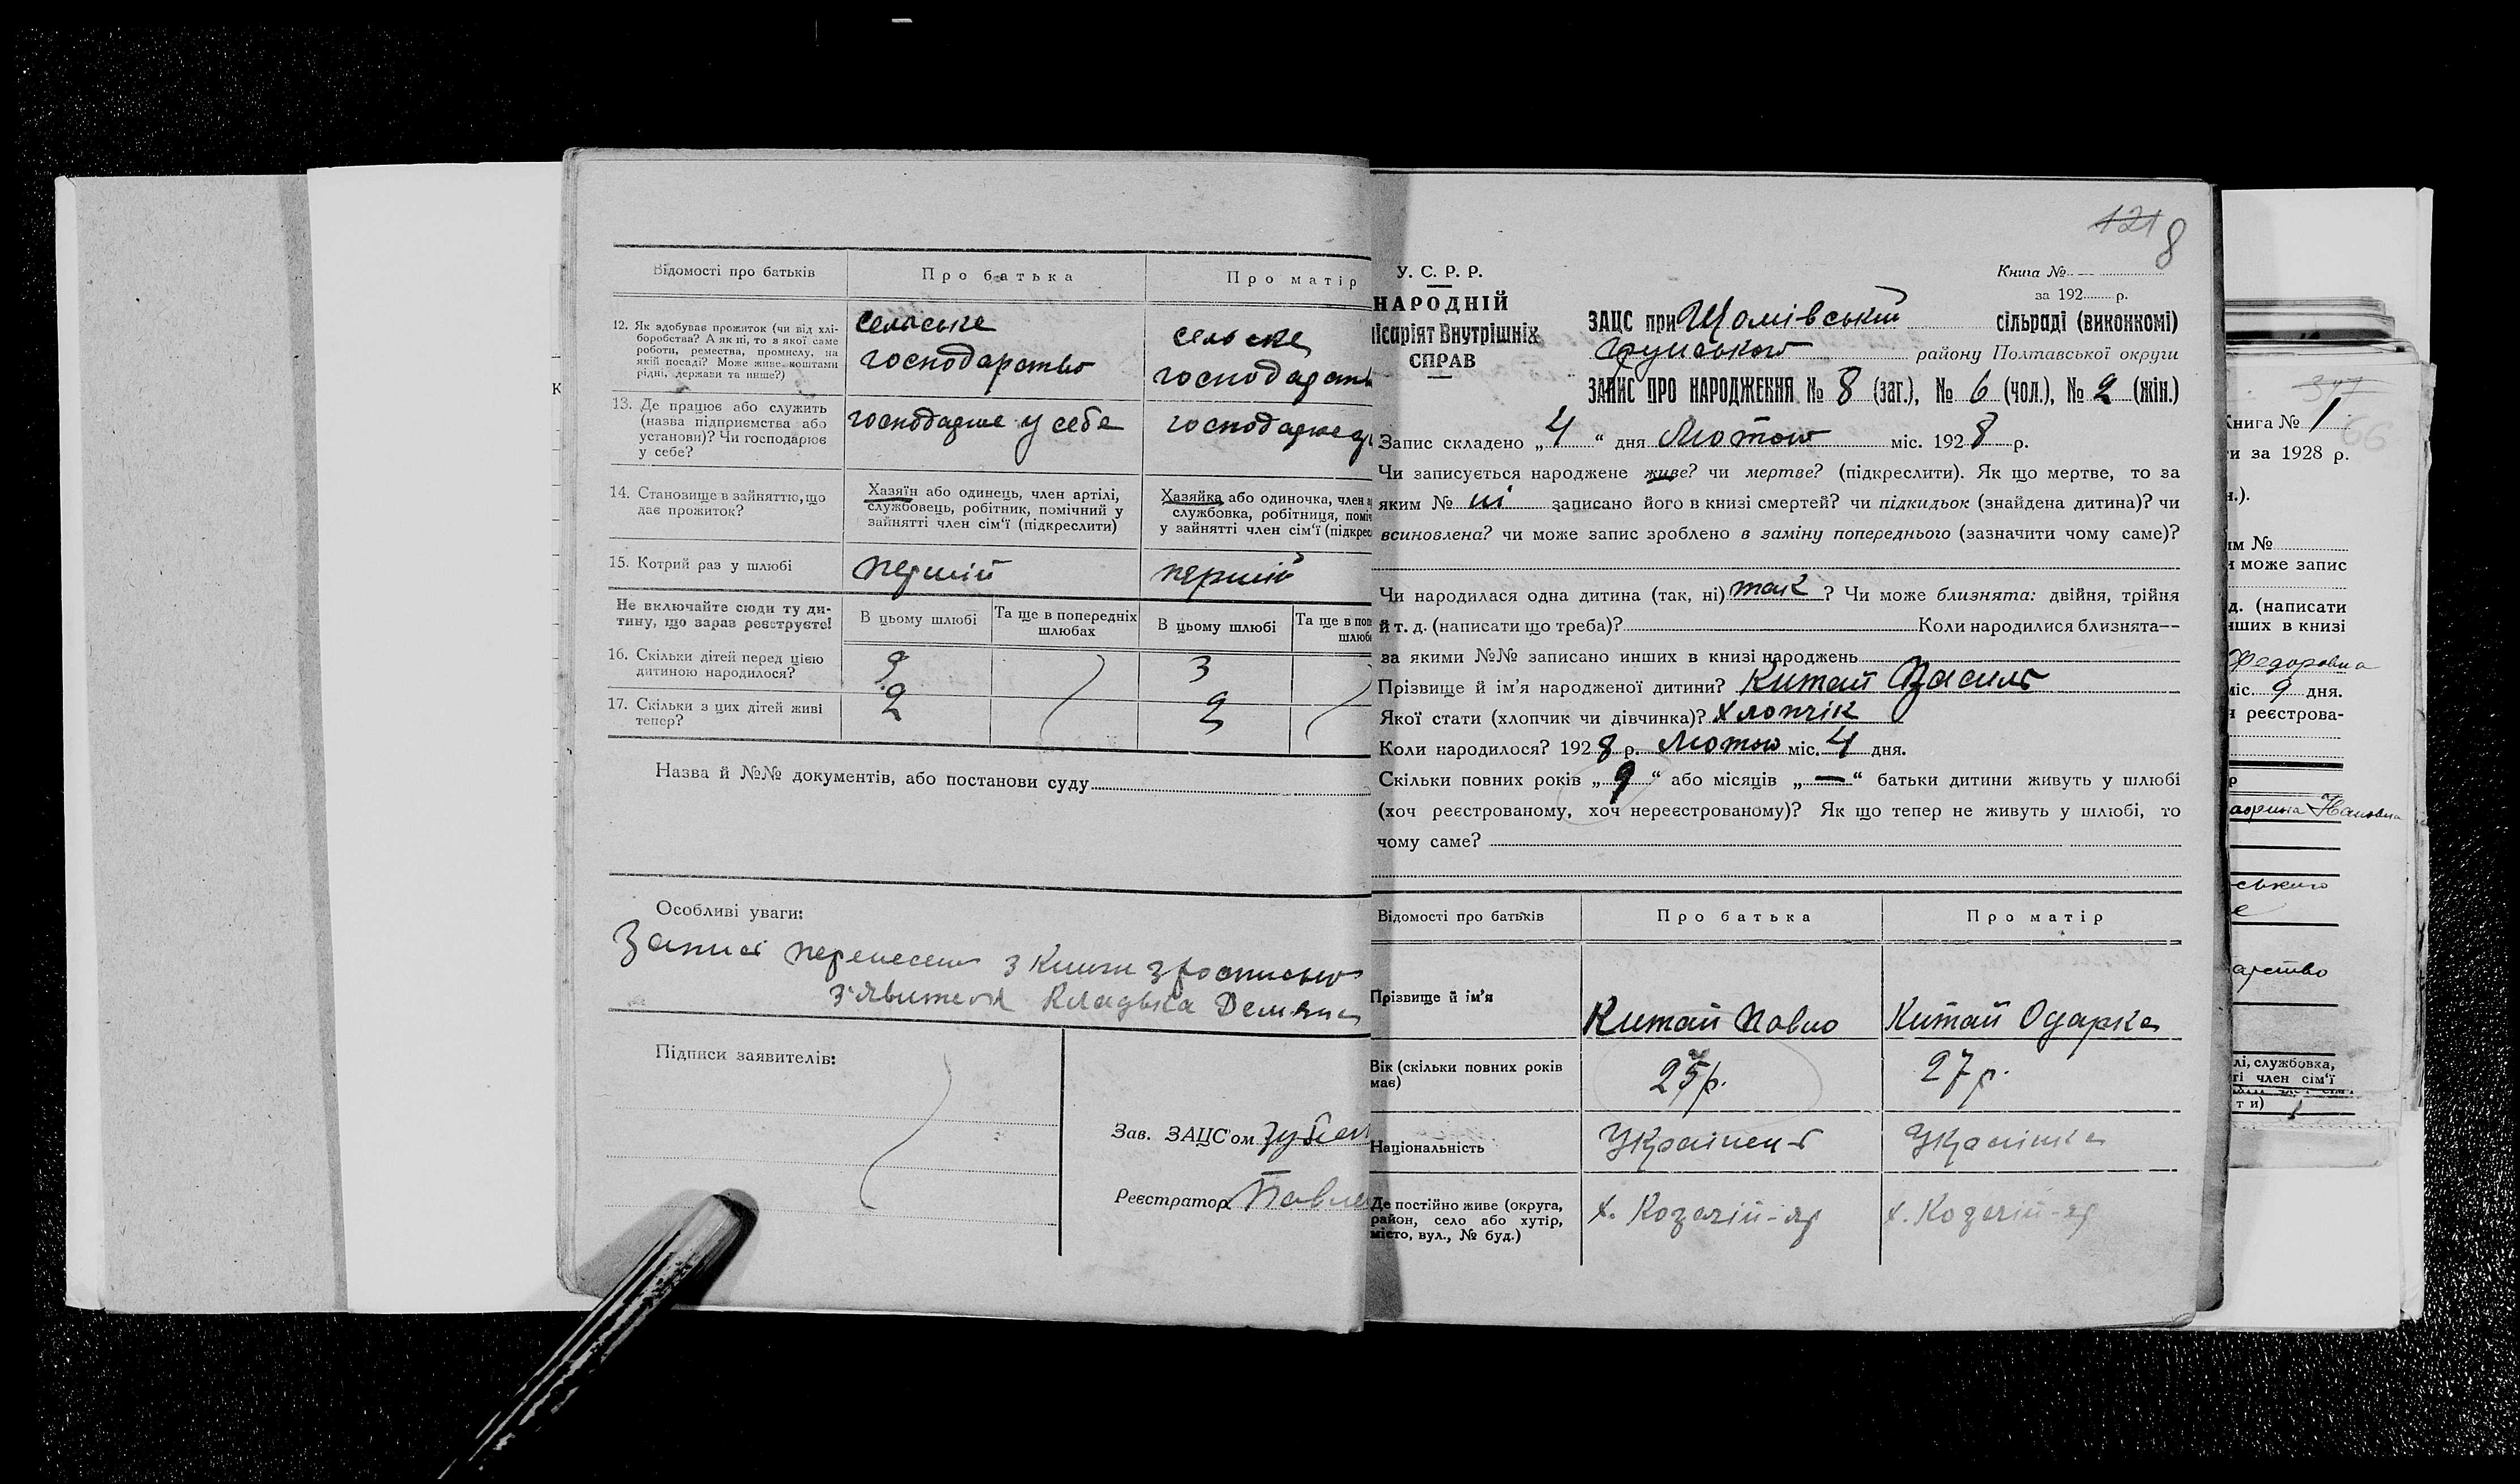 Відомості про батьків
Про батька
Про матір
12. Як здобуває прожиток (чи від хлі-
боробства? А як ні, то в якої саме
роботи, ремества, промислу, на
якій посаді? Може живе коштами
рідні, держави та инше?)
сельське
господарство
сельске
господарств
13. Де працює або служить
(назва підприємства або
установи)? Чи господарює
у себе?
господарює у себе
господарює
14. Становище в зайняттю, що
дає прожиток?
Хазяїн або одинець, член артілі,
службовець, робітник, помічний у
зайнятті член сім'ї (підкреслити)
Хазяйка або одиночка, член
службовка, робітниця, поміч
у зайнятті член сім'ї (підкрес
15. Котрий раз у шлюбі
першій
першій
Не включайте сюди ту ди-
тину, що зараз реєструєте!
В цьому шлюбі
Та ще в попередніх
шлюбах
В цьому шлюбі
Та ще в поп
шлюб
16. Скільки дітей перед цією
дитиною народилося?
3
3
17. Скільки з цих дітей живі
тепер?
2
2
Назва й №№ документів, або постанови суду
Особливі уваги:
Запись перенесено з книги з росписью
з'явителя Кладька Демяна
Підписи заявителів:
Зав. ЗАЦС'ом
Реєстратор Павле
К
121 8
У. С. Р. Р.
НАРОДНІЙ
ісаріят Внутрішніх
СПРАВ
Книга №
за 192 р.
ЗАЦС при Шомівський сільраді (виконкомі)
Грунського району Полтавської округи
ЗАПИС ПРО НАРОДЖЕННЯ № 8 (заг.), № 6 (чол.), № 2 (жін.)
Запис складено „4“ дня Лютого міс. 1928 р.
Чи записується народжене живе? чи мертве? (підкреслити). Як що мертве, то за
яким № ні записано його в книзі смертей? чи підкидьок (знайдена дитина)? чи
всиновлена? чи може запис зроблено в заміну попереднього (зазначити чому саме)?
Чи народилася одна дитина (так, ні) так ? Чи може близнята: двійня, трійня
й т. д. (написати що треба)? Коли народилися близнята—
за якими №№ записано инших в книзі народжень
Прізвище й ім'я народженої дитини? Китай Василь
Якої стати (хлопчик чи дівчинка)? хлопчік
Коли народилося? 1928 р. Лютого міс. 4 дня.
Скільки повних років „9“ або місяців „—“ батьки дитини живуть у шлюбі
(хоч реєстрованому, хоч нереєстрованому)? Як що тепер не живуть у шлюбі, то
чому саме?
Відомості про батьків
Про батька
Про матір
Прізвище й ім'я
Китай Павло
Китай Одарка
Вік (скільки повних років
має)
25 р.
27 р.
Національність
Українець
Українка
Де постійно живе (округа,
район, село або хутір,
місто, вул., № буд.)
х. Козячій-яр
х. Козячій-яр
Книга № 1
66
ти за 1928 р.
н.).
им №
и може запис
д. (написати
нших в книзі
Федоровна
міс. 9 дня.
и реєстрова-
р
ського
е
арство
лі, службовка,
ті член сім'ї
ти)